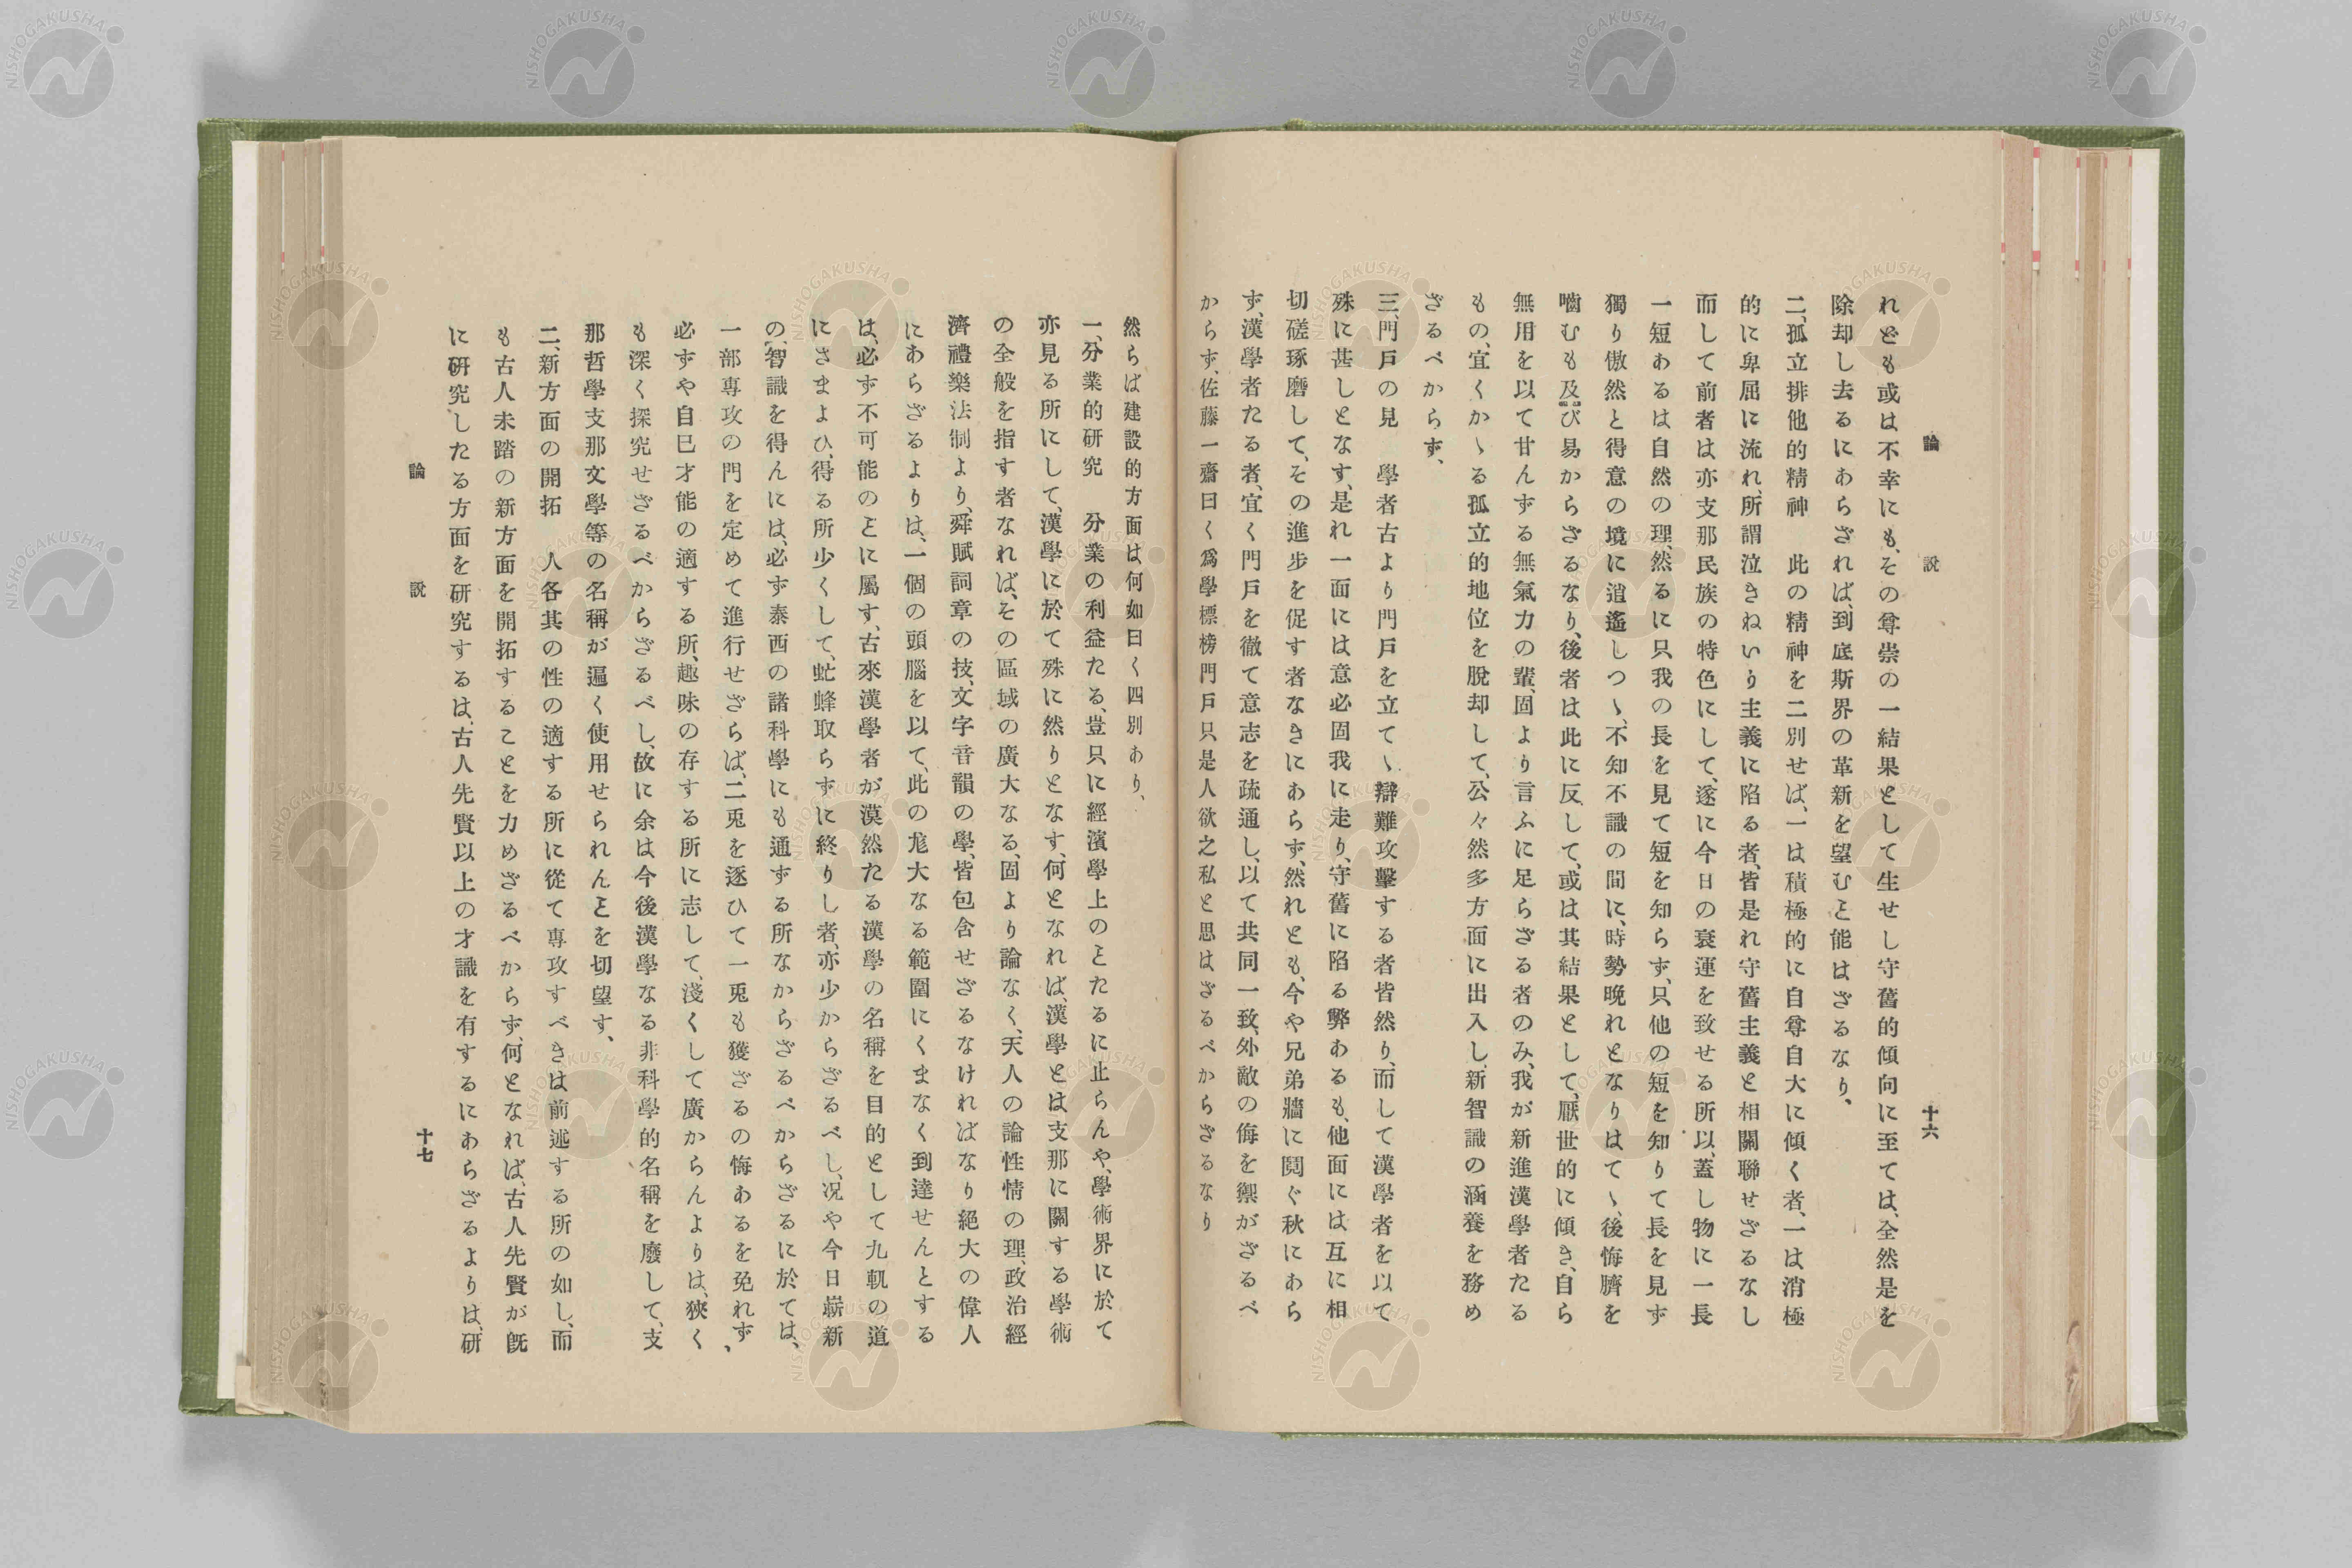 論 説 十六
れども或は不幸にも、その尊崇の一結果として生せし守舊的傾向に至ては、全然是を
除却し去るにあらざれば、到底斯界の革新を望むこと能はざるなり。
二、孤立排他的精神 此の精神を二別せば、一は積極的に自尊自大に傾く者、一は消極
的に卑屈に流れ、所謂泣きねいり主義に陷る者、皆是れ守舊主義と相關聯せざるなし
而して前者は亦支那民族の特色にして、遂に今日の衰運を致せる所以、蓋し物に一長
一短あるは自然の理、然るに只我の長を見て短を知らず、只他の短を知りて長を見ず
獨り傲然と得意の境に逍遙しつゝ、不知不識の間に、時勢晩れとなりはてゝ、後悔臍を
噛むも及び易からざるなり、後者は此に反して、或は其結果として、厭世的に傾き、自ら
無用を以て甘んずる無氣力の輩、固より言ふに足らざる者のみ、我が新進漢學者たる
もの、宜くかゝる孤立的地位を脫却して、公々然多方面に出入し、新智識の涵養を務め
ざるべからず、
三、門戶の見 學者古より門戶を立てゝ辯難攻擊する者皆然り、而して漢學者を以て
殊に甚しとなす、是れ一面には意必固我に走り、守舊に陷る弊あるも、他面には互に相
切磋琢磨して、その進步を促す者なきにあらず、然れども、今や兄弟牆に鬩ぐ秋にあら
ず、漢學者たる者、宜く門戶を徹て意志を疏通し、以て共同一致、外敵の侮を禦がざるべ
からず、佐藤一齋曰く爲學標榜門戶只是人欲之私と思はざるべからざるなり
然らば建設的方面は何如曰く四別あり、
一、分業的硏究 分業の利益たる、豈只に經濱學上のことたるに止らんや、學術界に於て
亦見る所にして、漢學に於て殊に然りとなす、何となれば、漢學とは支那に關する學術
の全般を指す者なれば、その區域の廣大なる、固より論なく、天人の論性情の理、政治經
濟禮樂法制より、舜賦詞章の技、文字音韻の學、皆包含せざるなければなり絕大の偉人
にあらざるよりは、一個の頭腦を以て、此の尨大なる範圍にくまなく到達せんとする
は、必ず不可能のことに屬す、古來漢學者が漠然たる漢學の名稱を目的として九軌の道
にさまよひ、得る所少くして、虻蜂取らずに終りし者、亦少からざるべし、况や今日嶄新
の、智識を得んには、必ず泰西の諸科學にも通ずる所なからざるべからざるに於ては、
一部專攻の門を定めて進行せざらば、二兎を逐ひて一兎も獲ざるの悔あるを免れず、
必ずや自己才能の適する所、趣味の存する所に志して、淺くして廣からんよりは、狹く
も深く探究せざるべからざるべし、故に余は今後漢學なる非科學的名稱を廢して、支
那哲學支那文學等の名稱が遍く使用せられんことを切望す、
二、新方面の開拓 人各其の性の適する所に從て專攻すべきは前述する所の如し、而
も古人未踏の新方面を開拓することを力めざるべからず、何となれば、古人先賢が旣
に硏究したる方面を硏究するは、古人先賢以上の才識を有するにあらざるよりは、硏
論 説 十七